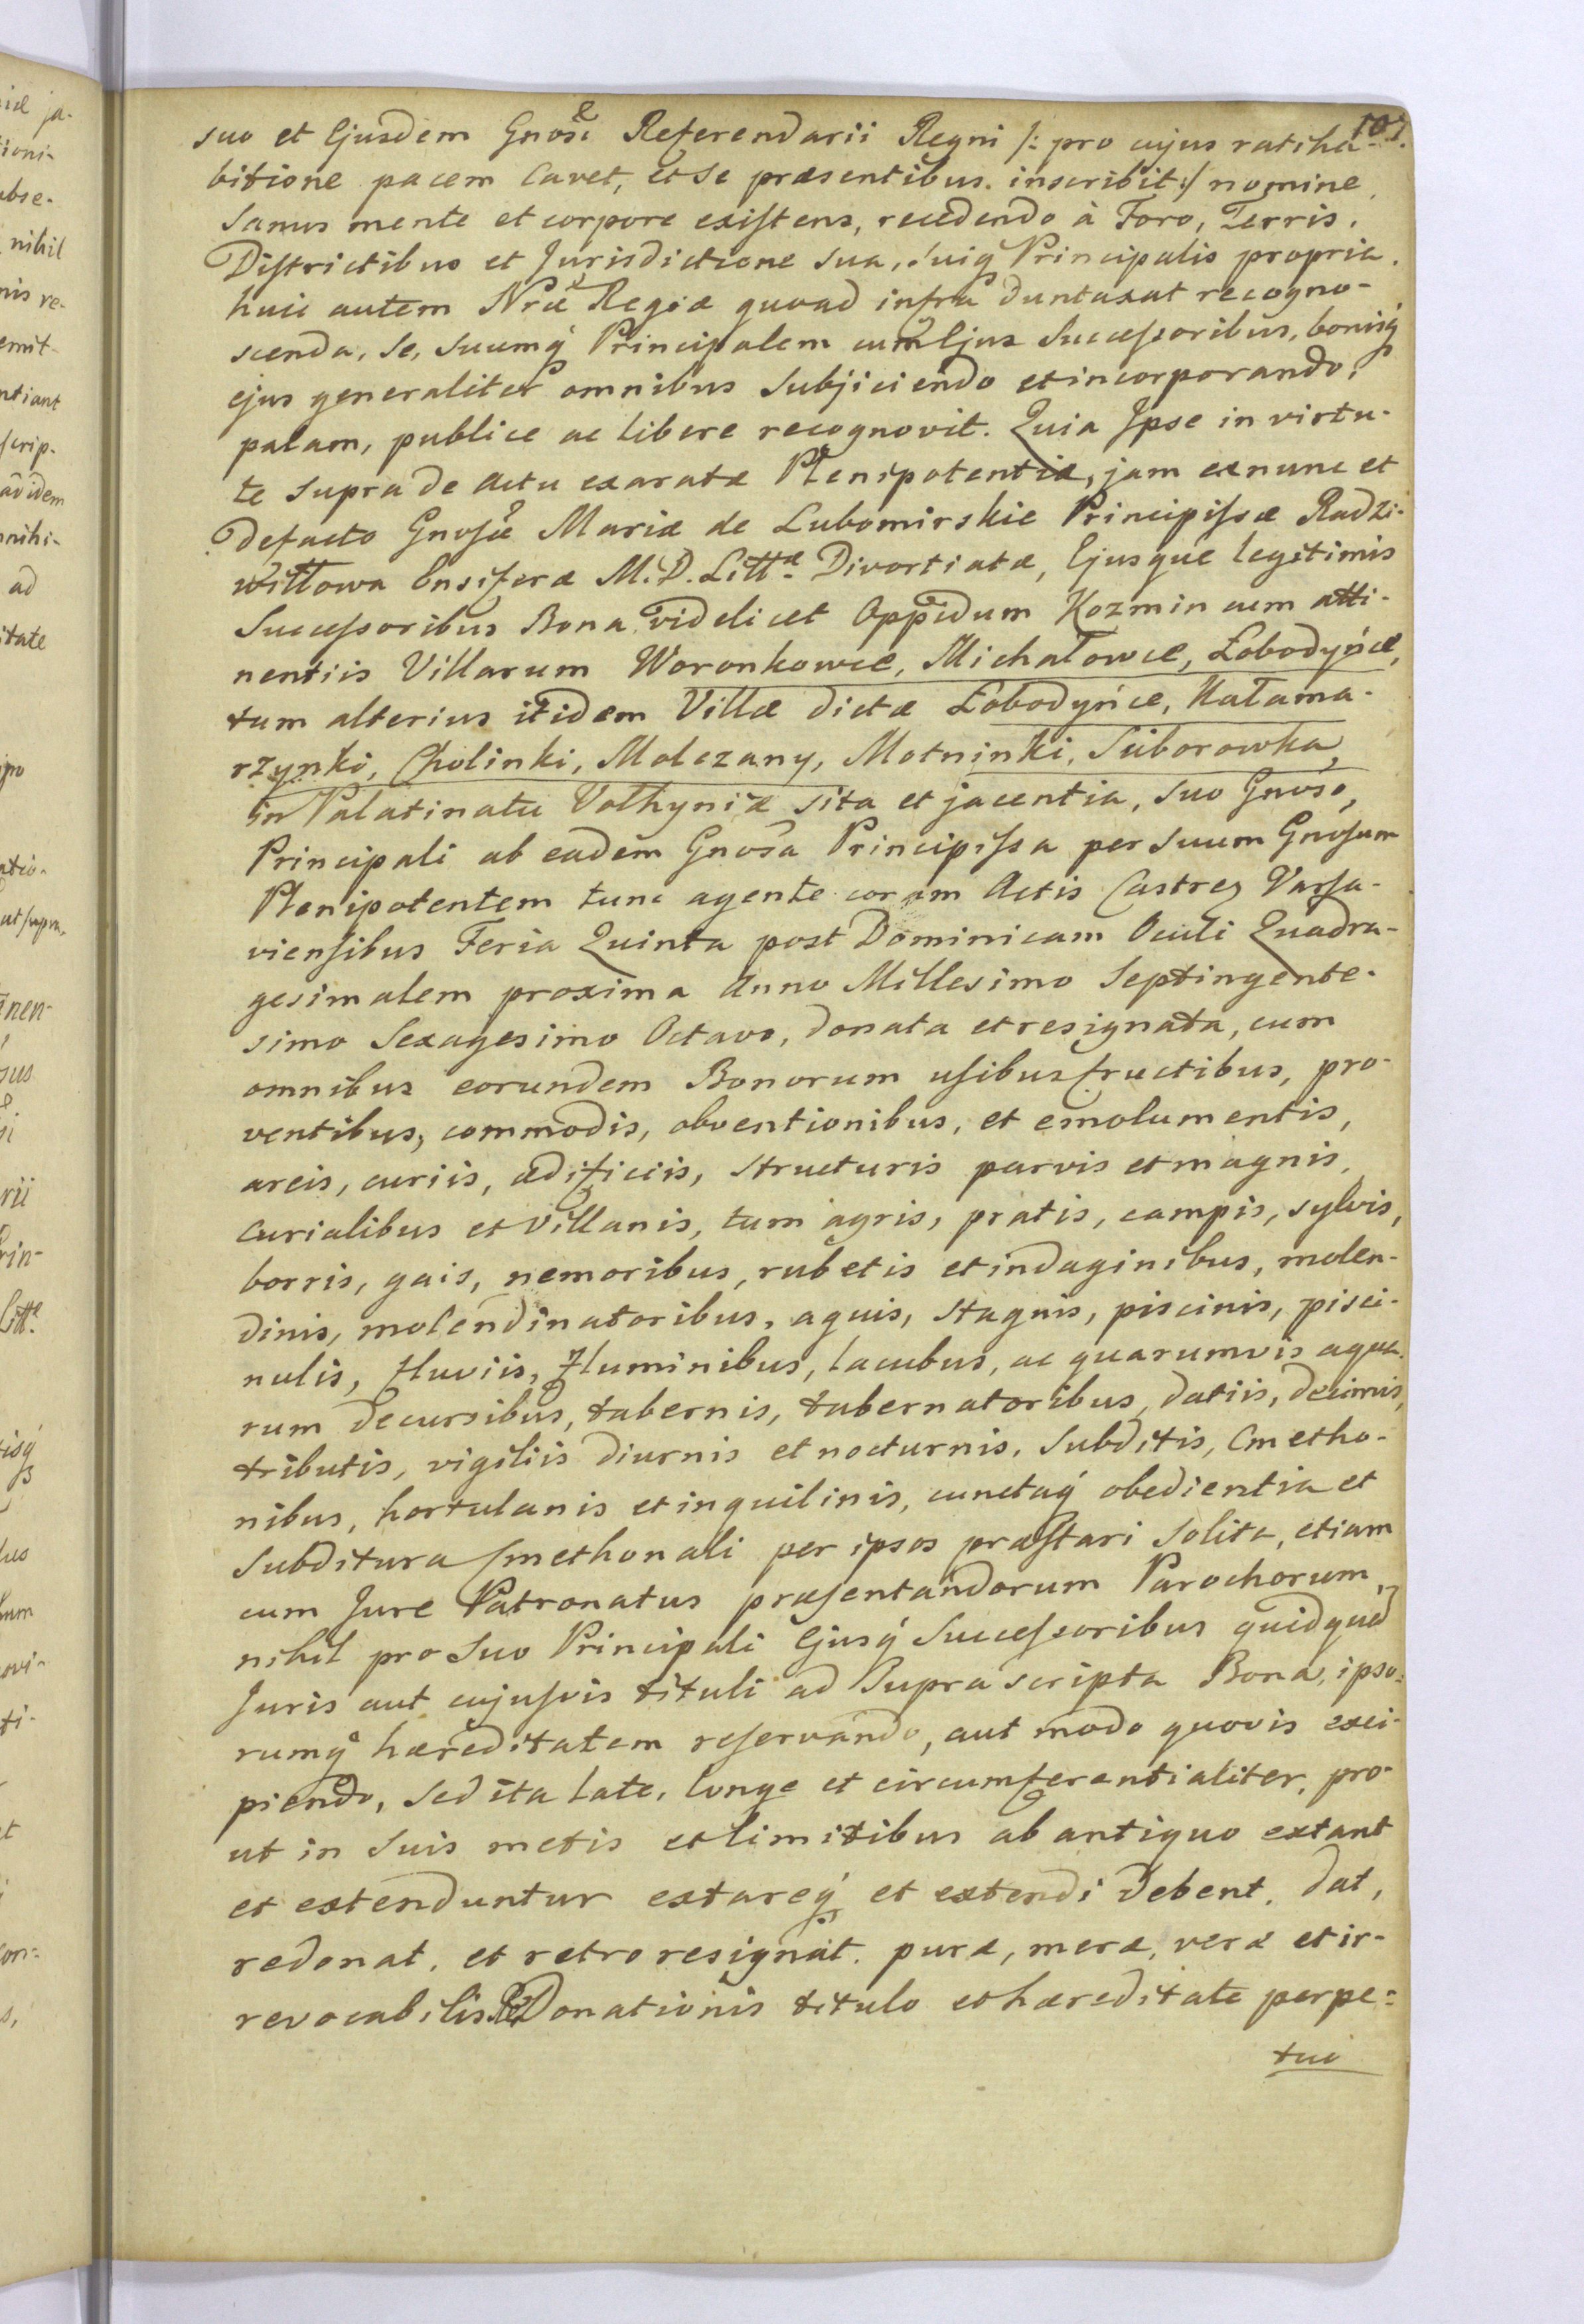 107.
suo et Ejusdem Gnosi Referendarii Regni /: pro cujus ratiha-
bitione pacem cavet, et se præsentibus inscribit :/ nomine
Sanus mente et corpore existens, recedendo à Foro, Terris,
Districtibus et Jurisdictione sua, suiq́ Principalis propria,
huic autem Nræ Regiæ quoad infra duntaxat recogno-
scenda, Se, Suumq́ Principalem cum Ejus Successoribus, bonisq́
ejus generaliter omnibus subjiciendo et incorporando,
palam, publice ac libere recognovit. Quia Ipse in virtu-
te supra de Actu exaratæ Plenipotentiæ, jam ex nunc et
defacto Gnosæ Mariæ de Lubomirskie Principissæ Radzi-
wiłłowa Ensiferæ M. D. Littæ Divortiatæ, Ejusque legitimis
Successoribus Bona videlicet Oppidum Kozmin cum atti-
nentiis Villarum Woronkowce, Michałowce, Łobodyńce,
tum alterius itidem Villæ dictæ Łobodyńce, Kałama-
rzynki, Cholinki, Molczany, Motninki, Suborowka,
in Palatinatu Volhyniæ sita et jacentia, suo Gnoso,
Principali ab eadem Gnosa Principissa per suum Gnosum
Plenipotentem tunc agente coram Actis Castren Varsa-
viensibus Feria Quinta post Dominicam Oculi Quadra-
gesimalem proxima Anno Millesimo Septingente-
simo Sexagesimo Octavo, donata et resignata, cum
omnibus eorundem Bonorum usibusfructibus, pro-
ventibus, commodis, obventionibus, et emolumentis,
areis, curiis, ædificiis, structuris parvis et magnis,
curialibus et villanis, tum agris, pratis, campis, sylvis,
borris, gais, nemoribus, rubetis et indaginibus, molen-
dinis, molendinatoribus, aquis, stagnis, piscinis, pisci-
nulis, fluviis, fluminibus, lacubus, ac quarumvis aqua-
rum decursibus, tabernis, tabernatoribus, datiis, decimis,
tributis, vigiliis diurnis et nocturnis, Subditis, Cmetho-
nibus, hortulanis et inquilinis, cunctaq́ obedientia et
subditura Cmethonali per ipsos præstari solita, etiam
cum Jure Patronatus præsentandorum Parochorum,
nihil pro suo Principali Ejusq́ Successoribus quidquid
Juris aut cujusvis tituli ad Supra scripta Bona, ipso-
rumq́ hæreditatem reservando, aut modo quovis exci-
piendo, sed ita late, longe et circumferentialiter, pro-
ut in suis metis et limitibus ab antiquo extant
et extenduntur extareq́ et extendi debent, dat,
redonat, et retro resignat. puræ, meræ, veræ et ir-
revocabilis Re Donationis titulo et hæreditate perpe-
tui